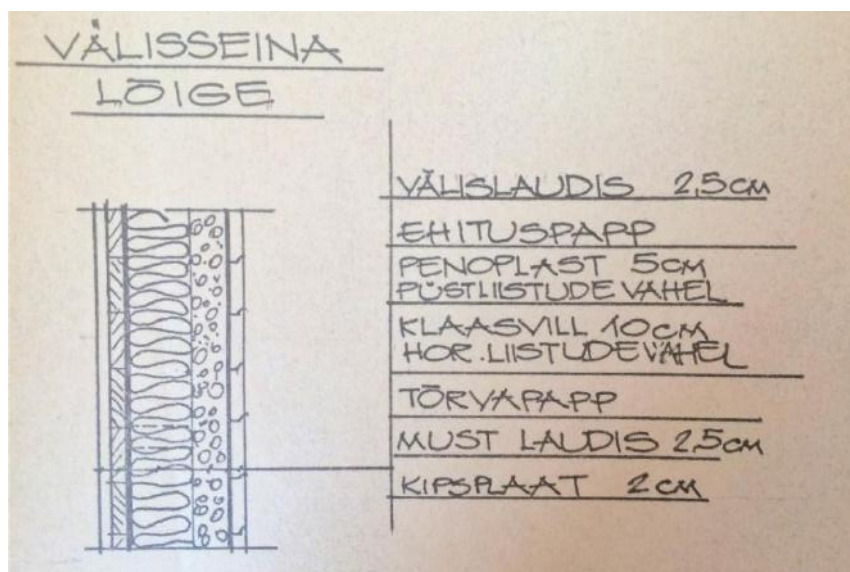 VÄLISSEINA
LÕIGE
VÄLISLAUDIS 2,5CM
EHITUSPAPP
PENOPLAST 5CM
PÜSTLIISTUDE VAHEL
KLAASVILL 10CM
HOR. LIISTUDE VAHEL
TÕRVAPAPP
MUST LAUDIS 2,5CM
KIPSPLAAT 2CM